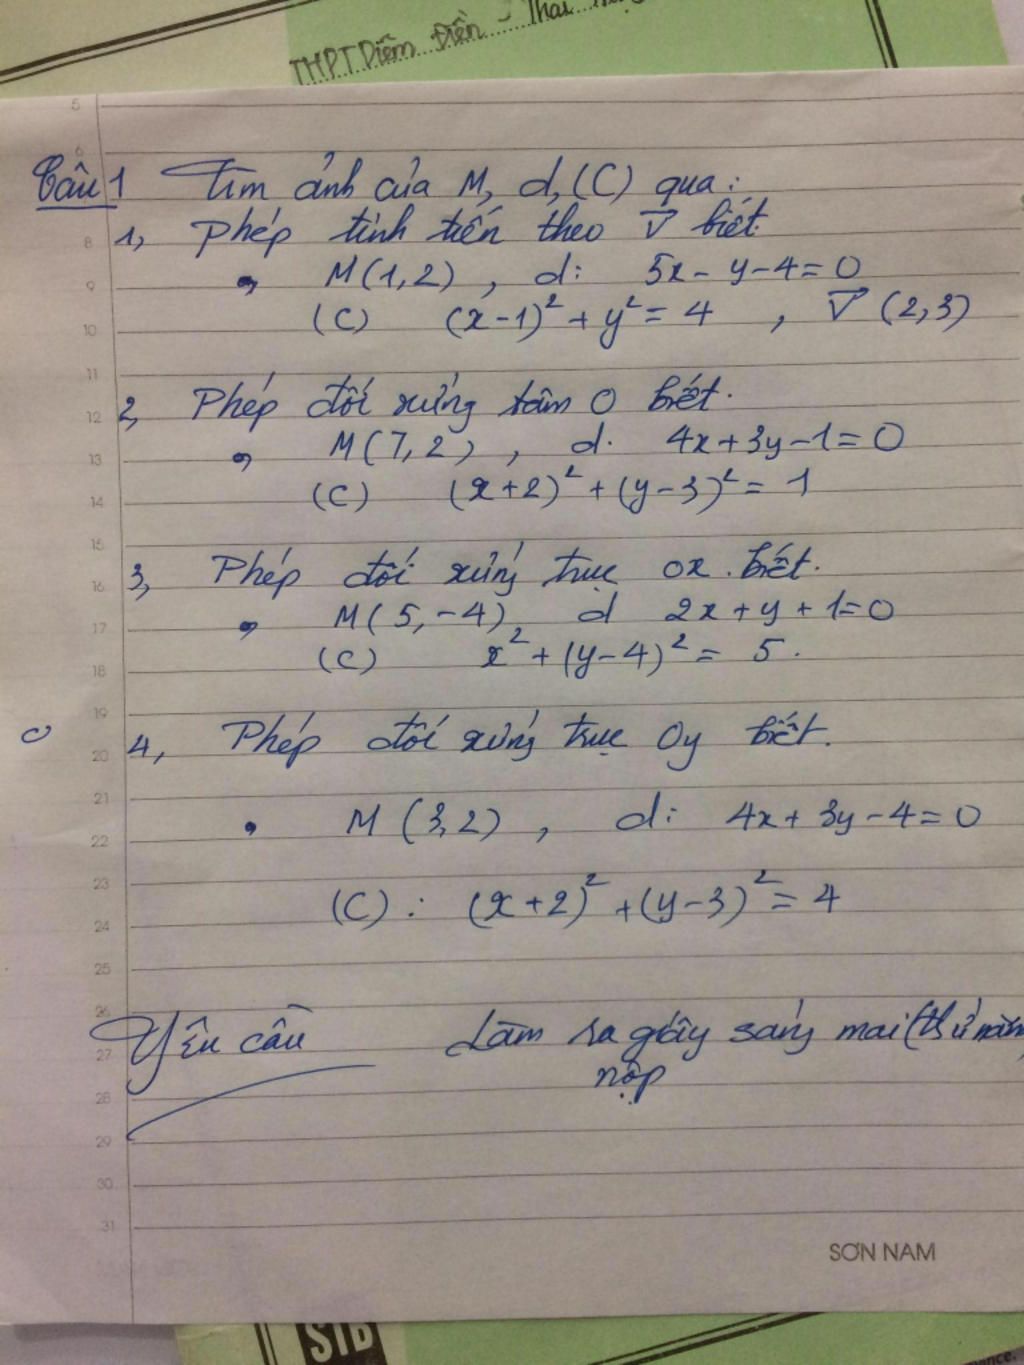 THPT Diêm Điền - Thái
5
6
Câu 1 Tìm ảnh của M, d, (C) qua:
8 1, Phép tịnh tiến theo v⃗ biết.
9 M(1,2), d: 5x - y - 4 = 0
10 (C) (x-1)² + y² = 4 , v⃗ (2,3)
11
12 2, Phép đối xứng tâm O biết.
13 M(7,2), d. 4x+3y-1=0
14 (C) (x+2)² + (y-3)² = 1
15
16 3, Phép đối xứng trục ox. biết.
17 M(5,-4), d 2x+y+1=0
18 (C) x² + (y-4)² = 5.
19
20 4, Phép đối xứng trục Oy biết.
21
22 M (3,2), d: 4x + 3y - 4 = 0
23
24 (C): (x+2)² + (y-3)² = 4
25
26
27 Yêu cầu Làm ra giấy sáng mai (thứ năm)
28 nộp
29
30
31
SƠN NAM
STB